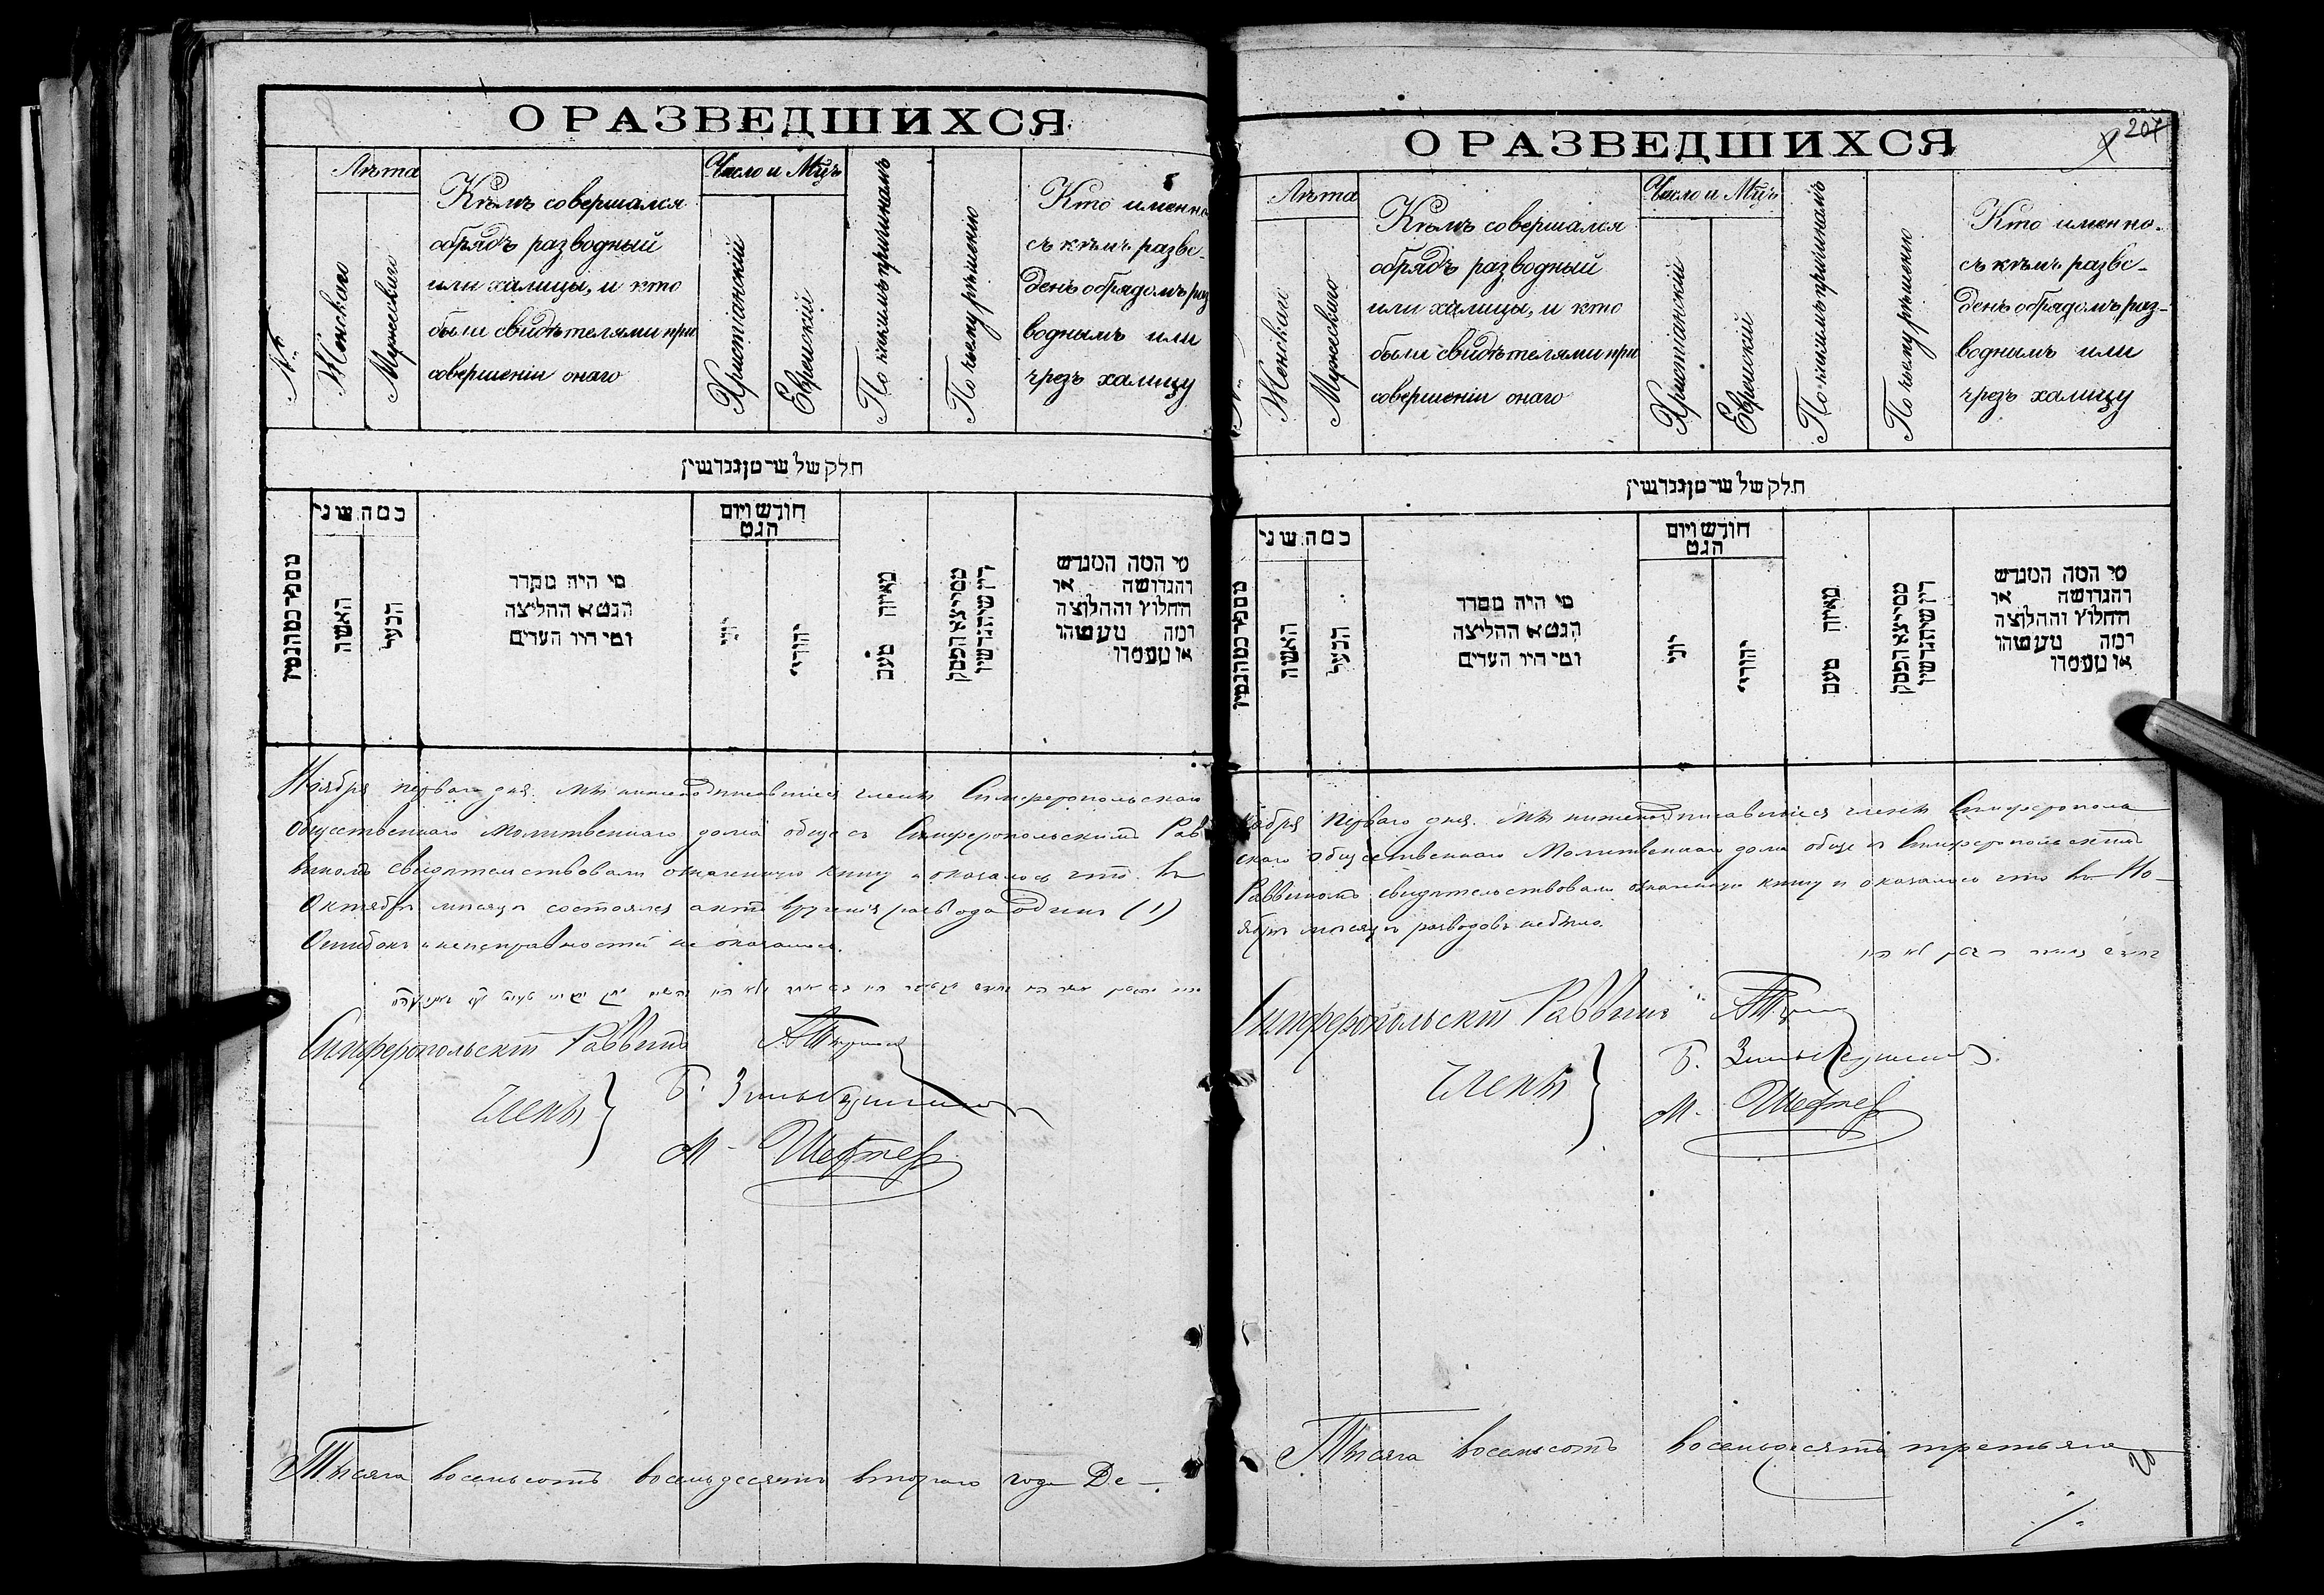 О РАЗВЕДШИХСЯ
№
Лѣта
Женскаго
Мужескаго
Кѣмъ совершался
обрядъ разводный
или халицы, и кто
были свидѣтелями при
совершеніи онаго
Число и Мцъ
Христіанскій
Еврейскій
По какимъ причинамъ
По чьему рѣшенію
Кто именно
съ кѣмъ разве-
денъ обрядомъ раз
воднымъ или
чрезъ халицу
חלק של
כמה שני
האשה
הבעל
מי היה מסדר
הגט או החליצה
ומי היו העדים
חודש ויום
הגט
יוני
יהודי
מאיזה טעם
מי המה המגרש
והגרושה או
החלוץ והחלוצה
Ноября перваго дня. мы нижеподписавшіеся члены Симферопольскаго
Общественнаго Молитвеннаго дома обще съ Симферопольскимъ Рав
виномъ свидѣтельствовали означенную книгу и оказалось что въ
Октябрѣ мѣсяцѣ состоялся актъ врученія развода одинъ (1)
Ошибокъ и неисправностей не оказалось.
Симферопольскій Раввинъ
Члены
Б.
М. Шефтер
Тысяча восемьсотъ восемьдесятъ втораго года Де-
О РАЗВЕДШИХСЯ
9 207
№
Лѣта
Женскаго
Мужескаго
Кѣмъ совершался
обрядъ разводный
или халицы, и кто
были свидѣтелями при
совершеніи онаго
Число и Мцъ
Христіанскій
Еврейскій
По какимъ причинамъ
По чьему рѣшенію
Кто именно
съ кѣмъ разве-
денъ обрядомъ раз-
воднымъ или
чрезъ халицу
חלק של
כמה שני
האשה
הבעל
מי היה מסדר
הגט או החליצה
ומי היו העדים
חודש ויום
הגט
יוני
יהודי
מאיזה טעם
מי המה המגרש
והגרושה או
החלוץ והחלוצה
кабря перваго дня. мы нижеподписавшіеся члены Симферополь
скаго общественнаго Молитвеннаго дома обще съ Симферопольскимъ
Раввиномъ свидѣтельствовали означенную книгу и оказалось что въ Но-
ябрѣ мѣсяцѣ разводовъ не было.
Симферопольскій Раввинъ
Члены
Б.
М. Шефтер
Тысяча восемьсотъ восемьдесятъ третьяго